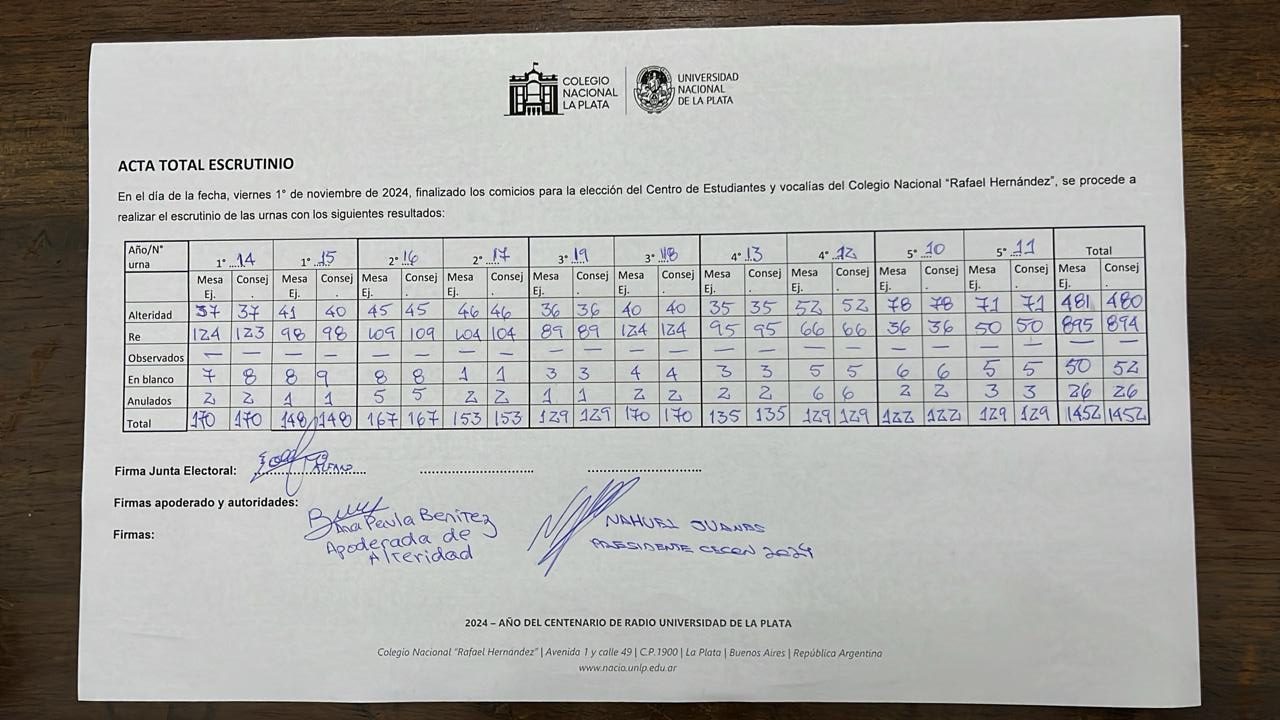 COLEGIO NACIONAL LA PLATA
UNIVERSIDAD NACIONAL DE LA PLATA
ACTA TOTAL ESCRUTINIO
En el día de la fecha, viernes 1° de noviembre de 2024, finalizado los comicios para la elección del Centro de Estudiantes y vocalías del Colegio Nacional “Rafael Hernández”, se procede a
realizar el escrutinio de las urnas con los siguientes resultados:
Año/N° urna 1° ....14 1° ....15 2° ....16 2° ....17 3° ....19 3° ....18 4° ....13 4° ....12 5° ....10 5° ....11 Total
Mesa Ej. Consej. Mesa Ej. Consej. Mesa Ej. Consej. Mesa Ej. Consej. Mesa Ej. Consej. Mesa Ej. Consej. Mesa Ej. Consej. Mesa Ej. Consej. Mesa Ej. Consej. Mesa Ej. Consej. Mesa Ej. Consej.
Alteridad 37 37 41 40 45 45 46 46 36 36 40 40 35 35 52 52 78 78 71 71 481 480
Re 124 123 98 98 109 109 104 104 89 89 124 124 95 95 66 66 36 36 50 50 895 894
Observados — — — — — — — — — — — — — — — — — — — — — —
En blanco 7 8 8 9 8 8 1 1 3 3 4 4 3 3 5 5 6 6 5 5 50 52
Anulados 2 2 1 1 5 5 2 2 1 1 2 2 2 2 6 6 2 2 3 3 26 26
Total 170 170 148 148 167 167 153 153 129 129 170 170 135 135 129 129 122 122 129 129 1452 1452
Firma Junta Electoral:
Firmas apoderado y autoridades:
Firmas:
Ana Paula Benitez
Apoderada de
Alteridad
NAHUEL JUANAS
PRESIDENTE CECON 2024
2024 – AÑO DEL CENTENARIO DE RADIO UNIVERSIDAD DE LA PLATA
Colegio Nacional “Rafael Hernández” | Avenida 1 y calle 49 | C.P.1900 | La Plata | Buenos Aires | República Argentina
www.nacio.unlp.edu.ar